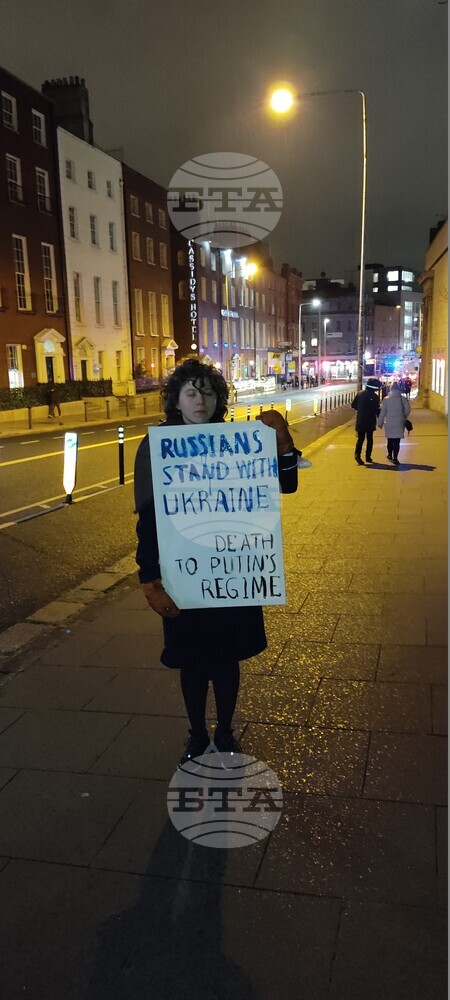 БТА
CASSIDYS HOTEL
RUSSIANS
STAND WITH
UKRAINE
DEATH
TO PUTIN'S
REGIME
БТА